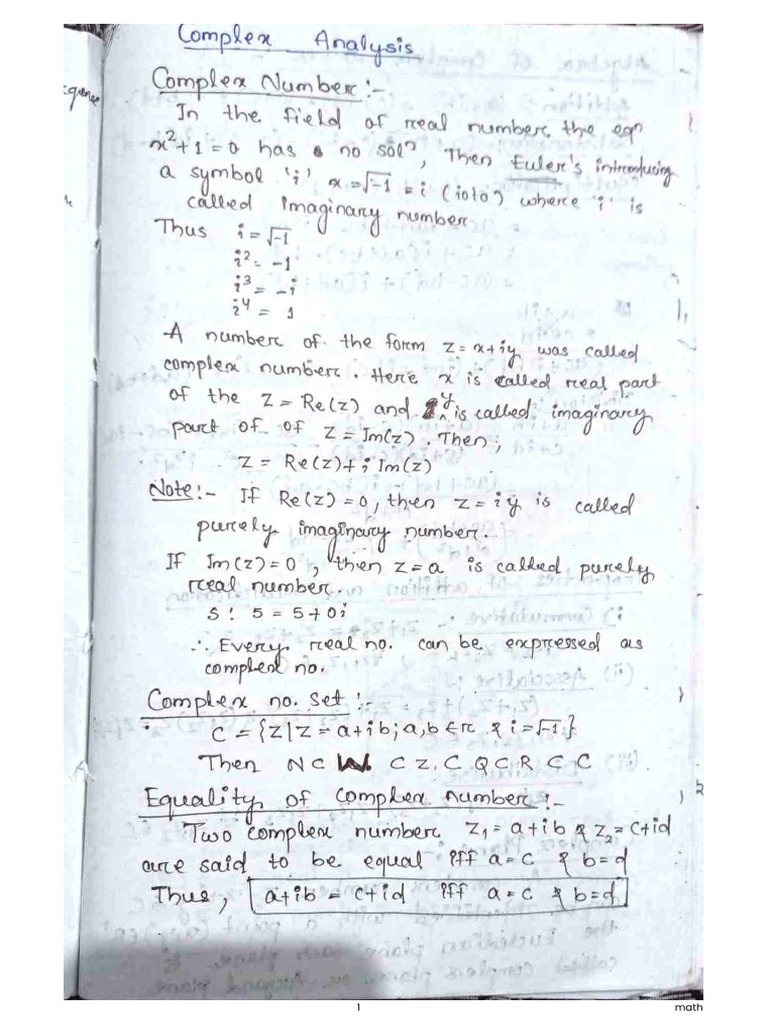 Complex Analysis
Complex Number:-
In the field of real number, the eqn
x²+1=0 has no solⁿ, Then Euler's introducing
a symbol 'i' x=√-1 = i (ioto) where 'i' is
called imaginary number
Thus i = √-1
i² = -1
i³ = -i
i⁴ = 1
A number of the form z = x+iy was called
complex number. Here x is called real part
of the Z = Re(z) and y is called imaginary
part of of Z = Im(z). Then,
Z = Re(z)+i Im(z)
Note:- If Re(z)=0, then z=iy is called
purely imaginary number.
If Im(z)=0, then z=a is called purely
real number.
S! 5 = 5+0i
∴ Every real no. can be expressed as
complex no.
Complex no. set:-
C = {Z/Z = a+ib; a,b ∈ r & i=√-1}
Then N ⊂ W ⊂ Z ⊂ Q ⊂ R ⊂ C
Equality of complex number:-
Two complex number z₁ = a+ib & z₂ = c+id
are said to be equal iff a=c & b=d
Thus, a+ib = c+id iff a=c & b=d
1
math